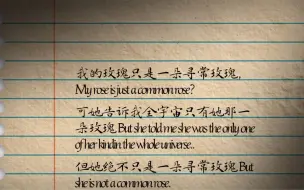 我的玫瑰只是一朵寻常玫瑰,
My rose is just a common rose?
可她告诉我全宇宙只有她那一
朵玫瑰.But she told me she was the only one
of her kindin the whole universe..
但她绝不只是一朵寻常玫瑰.But
she is not a common rose.